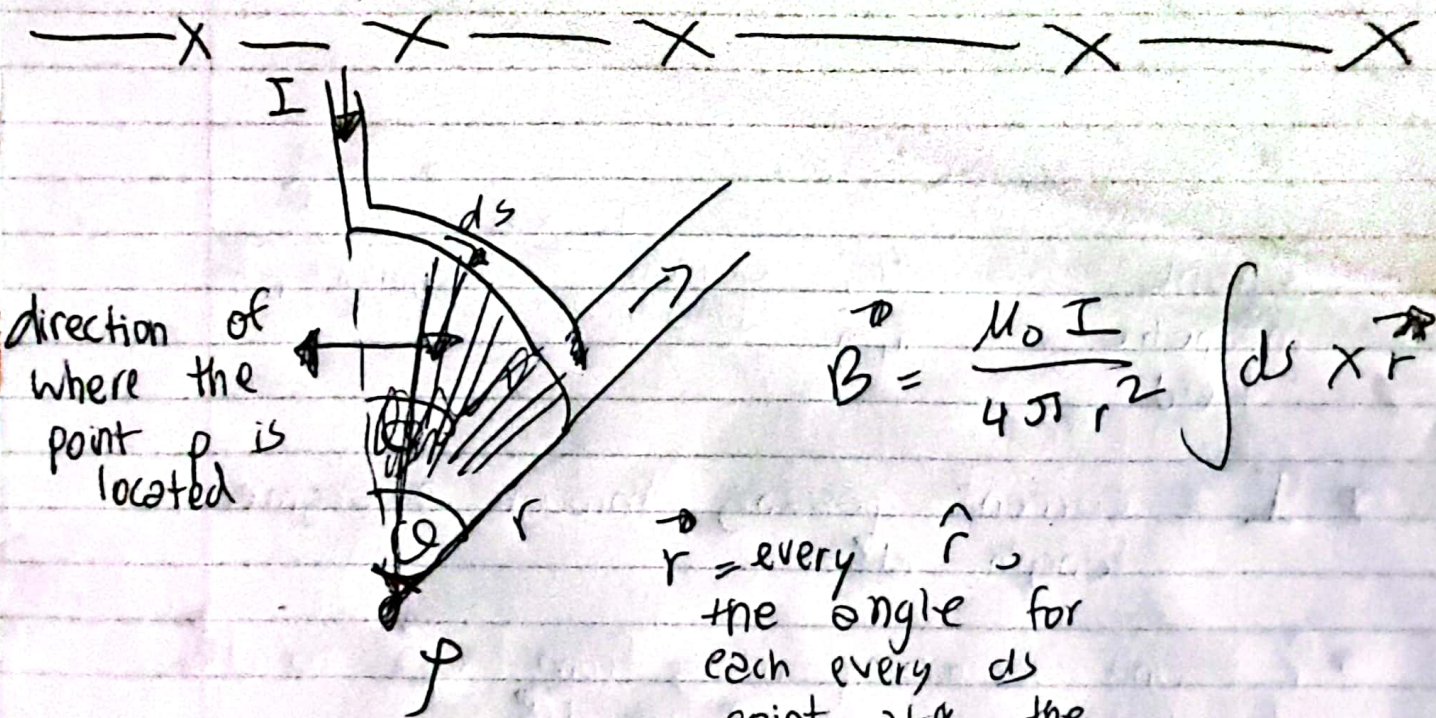 I
ds
direction of
where the
point p is
located
B⃗ = μ₀ I / 4π r² ∫ ds × r⃗
θ
r
r⃗ = every r̂,
the angle for
each every ds
point the
P